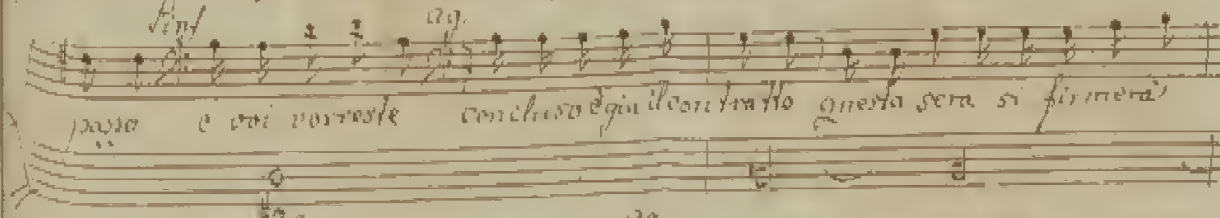 ag.
passo e voi vorreste concluso è gia il contratto questa sera si firmerà